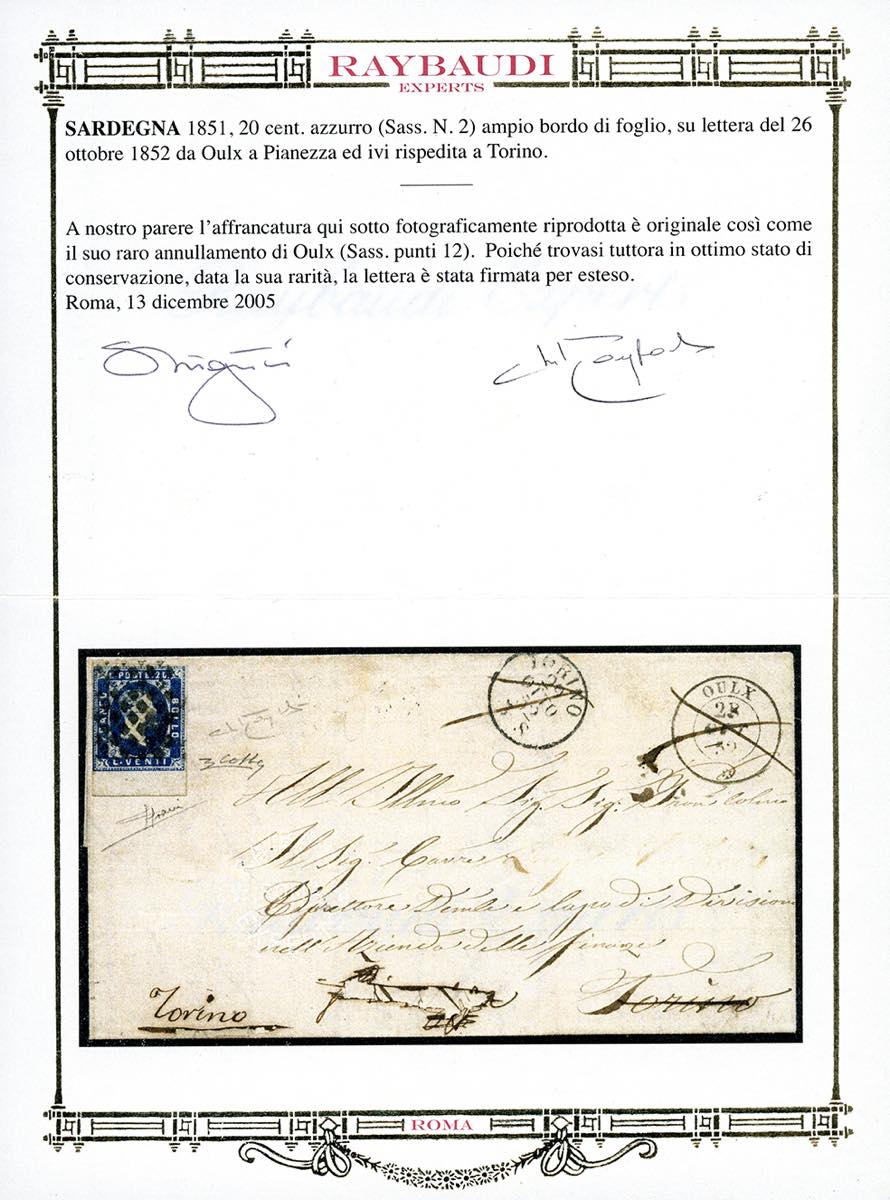 RAYBAUDI
EXPERTS
SARDEGNA 1851, 20 cent. azzurro (Sass. N. 2) ampio bordo di foglio, su lettera del 26
ottobre 1852 da Oulx a Pianezza ed ivi rispedita a Torino.
A nostro parere l'affrancatura qui sotto fotograficamente riprodotta è originale così come
il suo raro annullamento di Oulx (Sass. punti 12). Poiché trovasi tuttora in ottimo stato di
conservazione, data la sua rarità, la lettera è stata firmata per esteso.
Roma, 13 dicembre 2005
C. POSTE. 20
BOLLO
C. VENTI
TORINO
OULX
52
All' Illmo Sig. Sig.
Il Sig. Cavre
Direttore e Capo di Divisione
nell'Azienda delle Finanze
Torino
Torino
ROMA